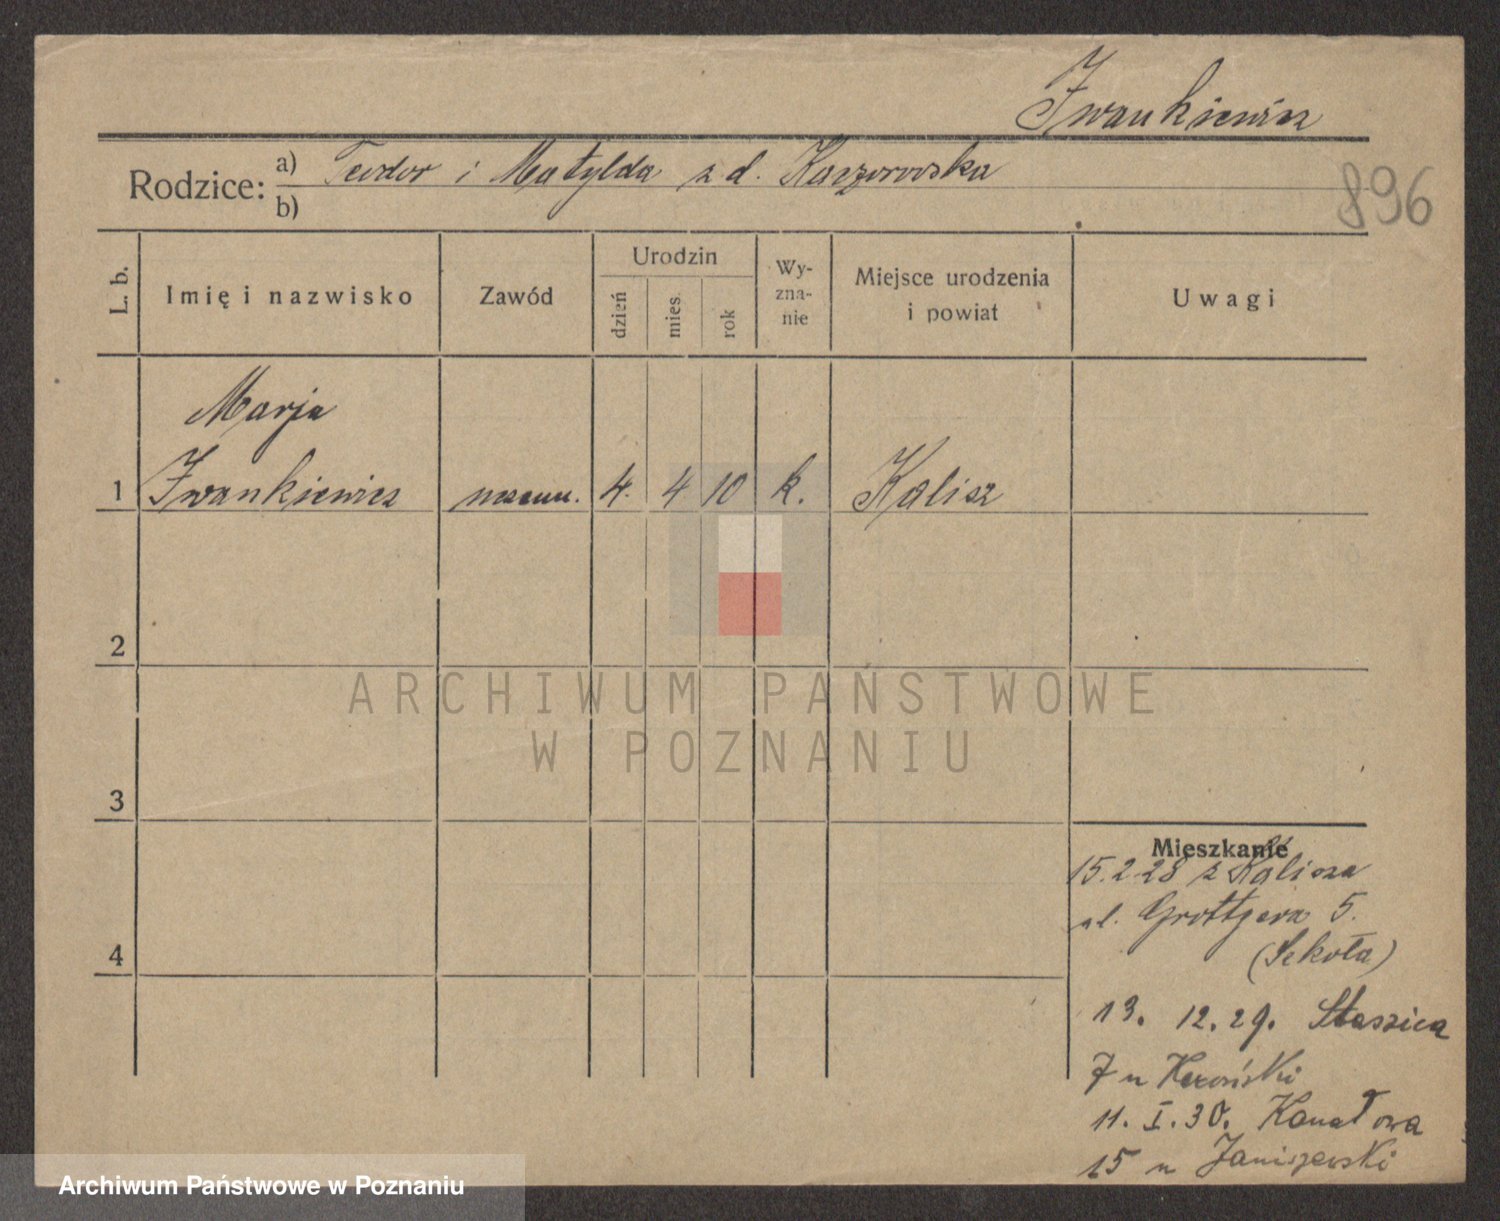 Iwankiewicz
Rodzice: a) Teodor i Matylda z d. Kaczorowska
b)
896
L. b.
Imię i nazwisko
Zawód
Urodzin
dzień
mies.
rok
Wy-
zna-
nie
Miejsce urodzenia
i powiat
Uwagi
Marja
1 Iwankiewicz 4. 4 10 k. Kalisz
2
3
4
Mieszkanie
15.2 28 z Kalisza
ul. Grottgera 5.
13. 12. 29. Staszica
7 u
11. I. 30. Kanałowa
15 u Janiszewski
ARCHIWUM PAŃSTWOWE
W POZNANIU
Archiwum Państwowe w Poznaniu